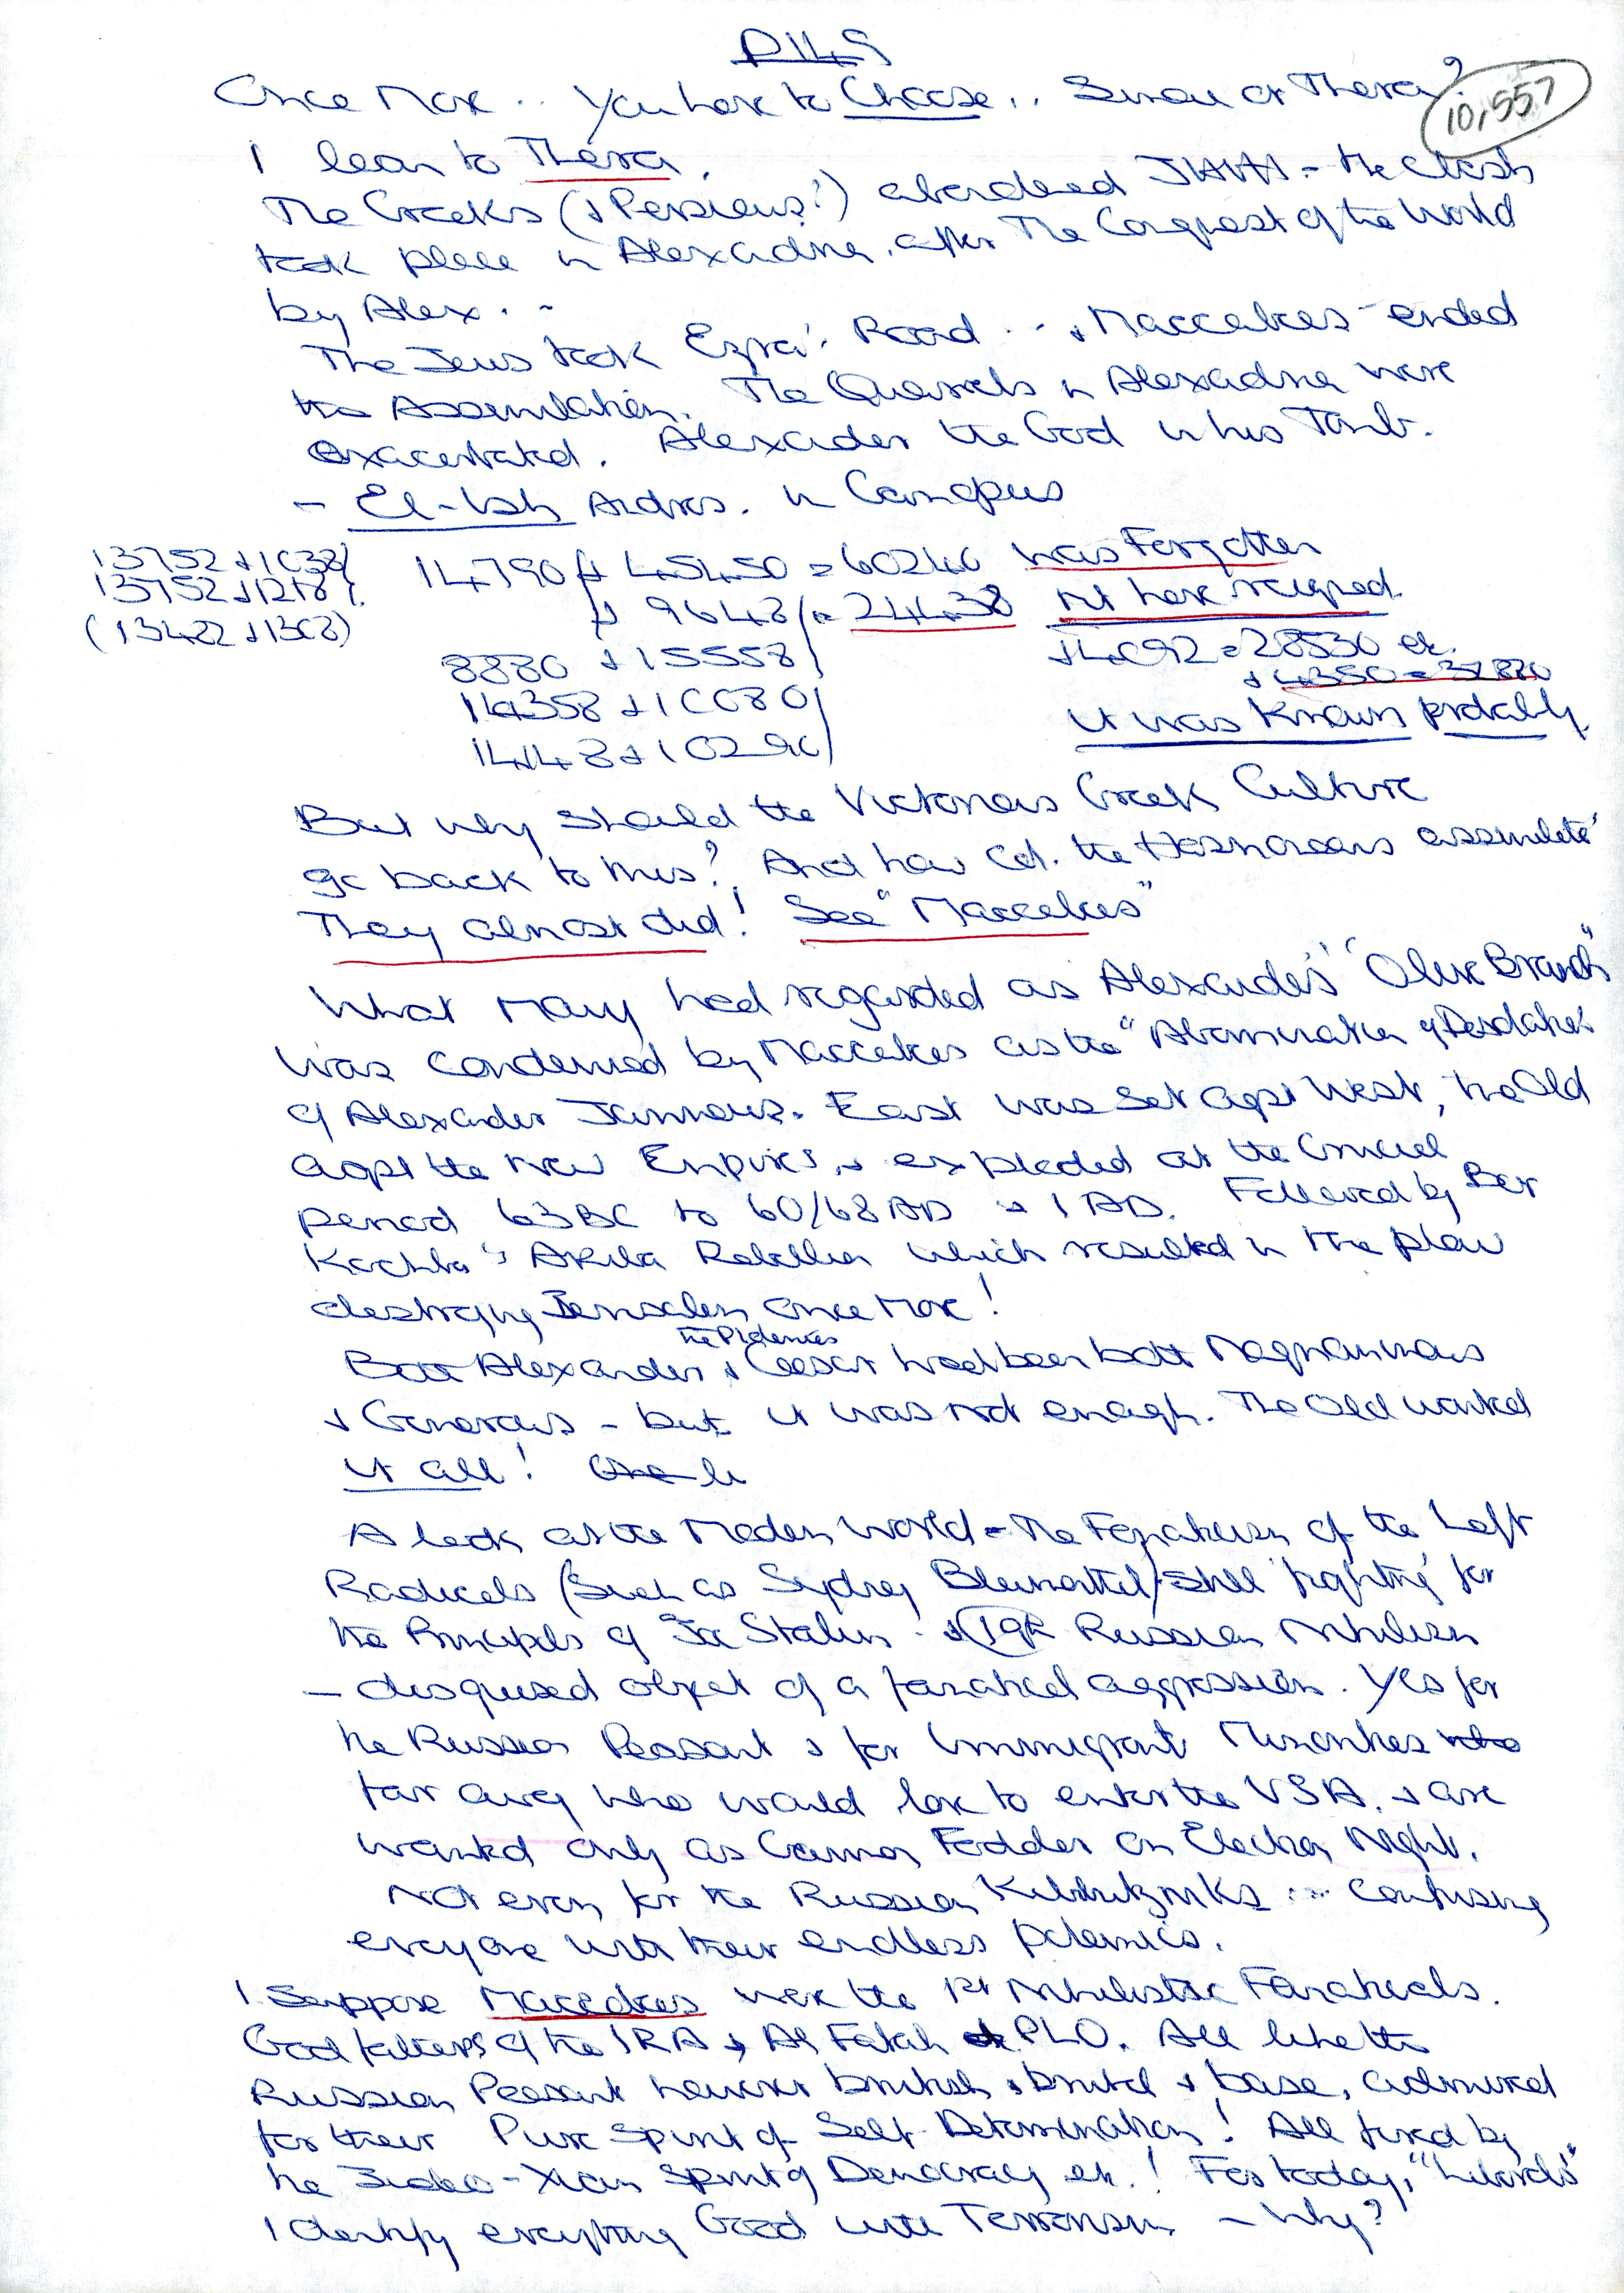 D149
Once More .. You have to Choose .. Sinai or Thera?
10,557
I lean to Thera.
The Greeks (& Persians?) abandoned JHVH - the Clash
took place in Alexandria, after the Conquest of the World
by Alex. ..
The Jews took Ezra's Road .. & Maccabees - ended
the Assimilation. The Quarrels in Alexandria were
exacerbated. Alexander the God in his Tomb.
- El-Ish Andros. in Canopus
13752 + 1038/
13752 + 1218/
(13422 + 1368)
14790 + 45450 = 60240 was Forgotten
+ 9648/ = 24438 not here resigned.
8880 + 15558/ + 4092 = 28530 etc.
14358 + 10080/ + 4350 = 32880
14148 + 10290/ it was Known probably
But why should the Victorious Greek Culture
go back to this? And how cd. the Hasmoneans assimilate?
They almost did! See "Maccabees"
What Many had regarded as Alexander's "Olive Branch"
Was condemned by Maccabees as the "Abomination of Desolation"
of Alexander Jannaeus. East was set agst West, the Old
agst the New Empires, & exploded at the Crucial
period 63 BC to 60/68 AD & 1 AD. Followed by Bar
Kochba's Akiba Rebellion which resulted in the plow
destroying Jerusalem once More!
the Ptolemies
Both Alexander & Caesar had been both Magnanimous
& Generous - but it was not enough. The Old wanted
it all!
A look at the Modern World - The Fanaticism of the Left
Radicals (Such as Sydney Blumenthal) still 'fighting' for
the Principles of Joe Stalin. & 19C Russian Nihilism
- disguised object of a fanatical aggression. Yes for
the Russian Peasant & for Immigrant Minorities who
far away who would love to enter the USA. & are
wanted only as Cannon Fodder on Election Night.
Not even for the Russian Kibbutzniks ... confusing
everyone with their endless polemics.
I Suppose Maccabees were the 1st Nihilistic Fanaticals.
Godfathers of the IRA & Al Fatah PLO. All like the
Russian Peasant however brutish & brutal & base, admired
for their Pure Spirit of Self Determination! All fired by
the Judeo-Xian Spirit of Democracy etc.! For today, "Liberals"
Identify everything Good with Terrorism - Why?